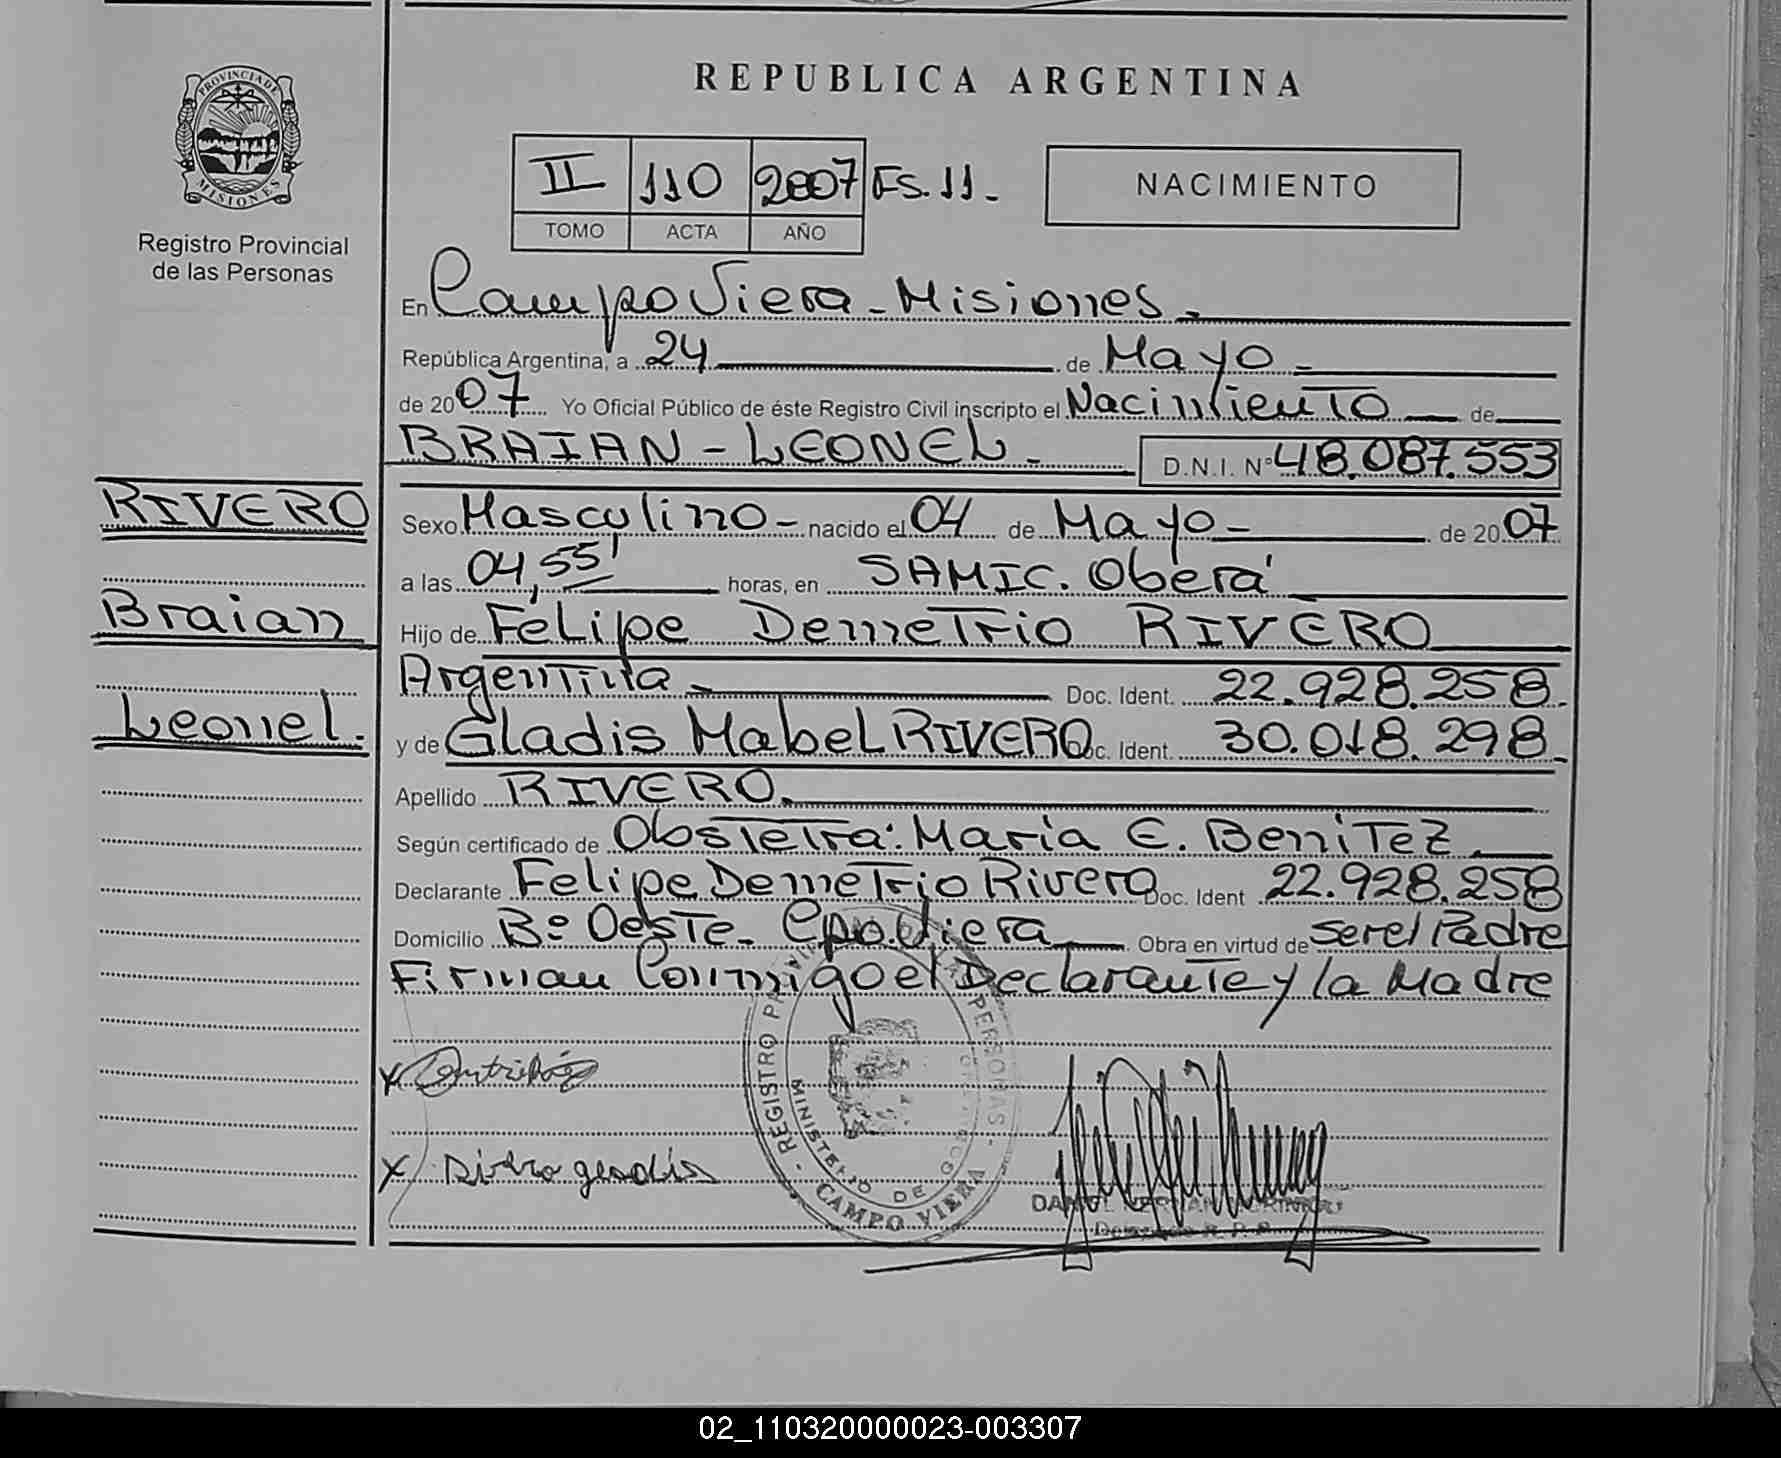 REPUBLICA ARGENTINA
PROVINCIA DE
MISIONES
Registro Provincial
de las Personas
II 110 2007 FS. 11.-
TOMO ACTA AÑO
NACIMIENTO
En Campo Viera - Misiones.-
República Argentina, a 24 de Mayo -
de 2007 Yo Oficial Público de éste Registro Civil inscripto el Nacimiento de
BRAIAN - LEONEL - D.N.I. Nº 48.087.553
RIVERO
Braian
Leonel.
Sexo Masculino - nacido el 04 de Mayo - de 2007
a las 04,55' horas, en SAMIC. Oberá
Hijo de Felipe Demetrio RIVERO
Argentina - Doc. Ident. 22.928.258.
y de Gladis Mabel RIVERO Doc. Ident. 30.018.298.
Apellido RIVERO.
Según certificado de Obstetra: María E. Benitez.
Declarante Felipe Demetrio Rivero Doc. Ident 22.928.258
Domicilio Bº Oeste. Cpo. Viera Obra en virtud de ser el Padre
Firman Conmigo el Declarante y la Madre
REGISTRO PROVINCIAL DE LAS PERSONAS - CAMPO VIERA -
MINISTERIO DE GOBIERNO
X
X
02_110320000023-003307